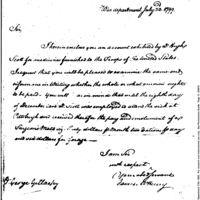 War department July 22d. 1799.
Sir
I herewith enclose you an account exhibited by Dr. Hugh
Scot for medicine furnished to the Troops of the United States
I request that you will be pleased to examine the same and
inform me in writing whether the whole or what amount ought
to be paid. You will in mind that until the eighth day
of December last Dr Scot was employed to attend the sick at
Pittsburgh and received therefor the pay and emoluments of a
Surgeons Mate vizt. Thirty dollars month two rations day
and six dollars for forage
I am Sir
with respect
your obed servant
James McHenry
Dr. George Gillasspy